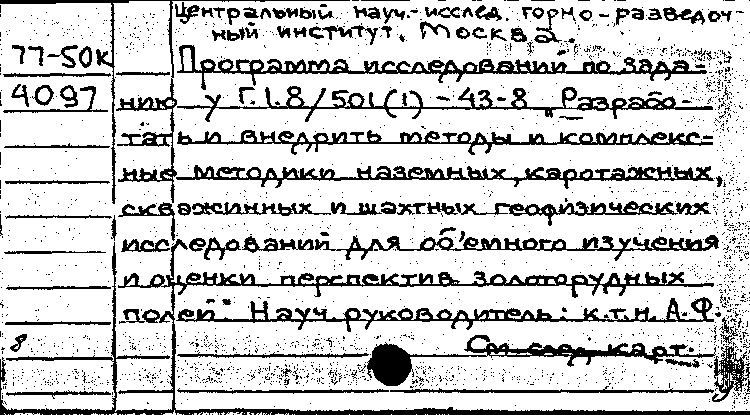 Центральный науч.-исслед. горно-разведоч-
ный институт. Москва.
77-50к Программа исследований по зада-
4097 нию у Г.1.8/501(1)-43-8 „Разрабо-
тать и внедрить методы и комплекс-
ные методики наземных, каротажных,
скважинных и шахтных геофизических
исследований для объ'емного изучения
и оценки перспектив золоторудных
полей". Науч. руководитель: к.т.н. А.Ф.
8 См. след. карт.